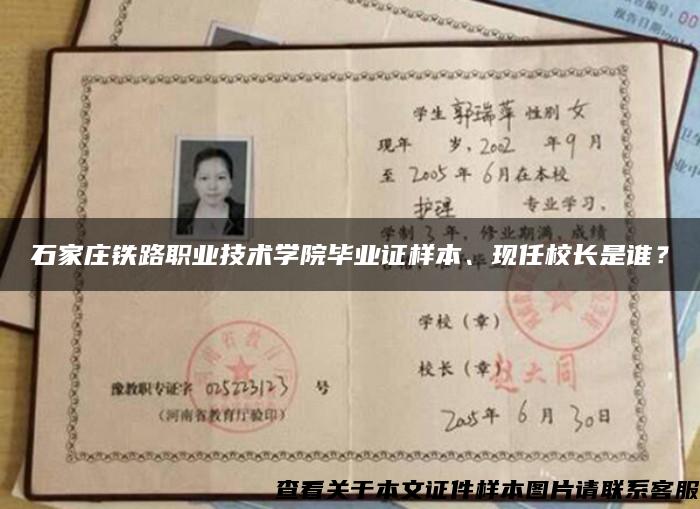 学生 郭瑞萍 性别 女
现年 岁，2002 年 9 月
至 2005 年 6 月在本校
护理 专业学习，
学制 3 年，修业期满，成绩
石家庄铁路职业技术学院毕业证样本、现任校长是谁？
学校（章）
校长（章） 赵大同
豫教职专证字 025223123 号
（河南省教育厅验印）
2005年 6 月 30日
查看关于本文证件样本图片请联系客服